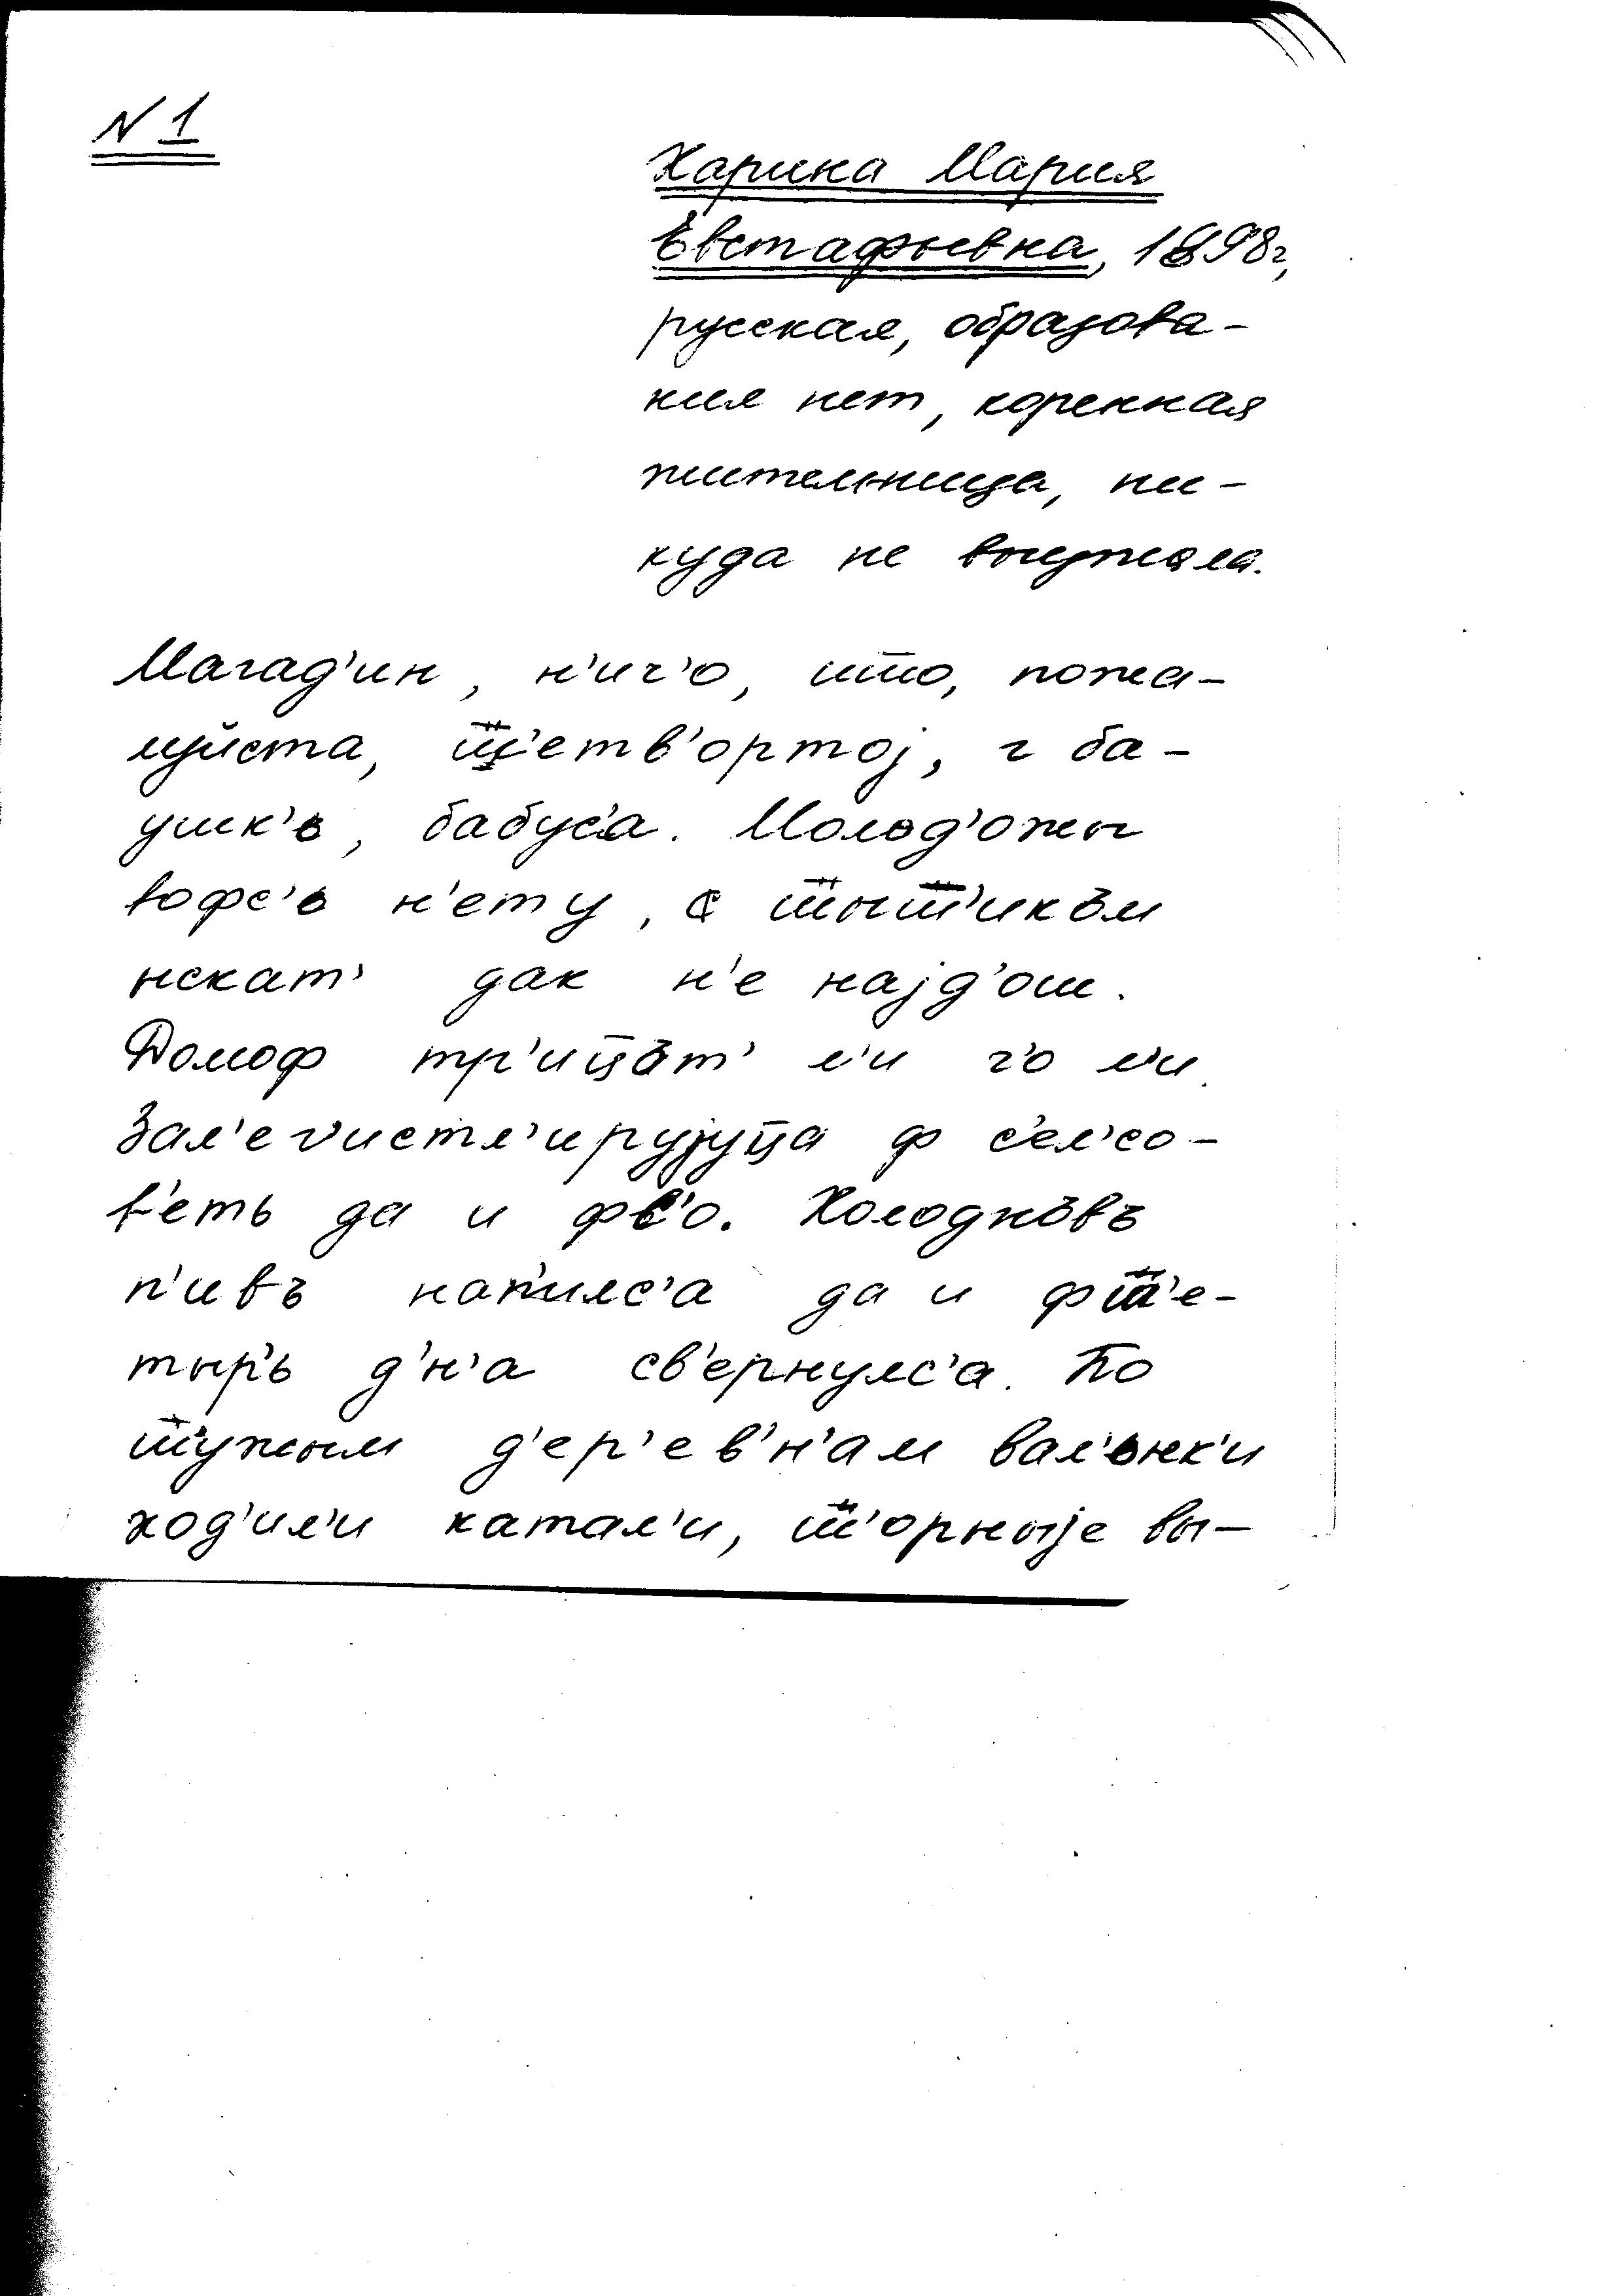 N 1
Харина Мария
Евстафьевна, 1898г,
русская, образова-
ния нет, коренная
жительница, ни-
куда не выезжала.
Магад'ин, н'иг'о, што, пожа-
луйста, ш̅'етв'ортој, г ба-
ушк'ь, бабус'а. Молод'ожы
вофс'ь н'ету, с ш̅ыш̅'икъм
искат' дак н'е најд'ош.
Домоф тр'иц̅ът' л'и г'о л'и.
Зал'егистл'ирујуц̅а ф с'ел'со-
в'еть да и фс'о. Холоднъвъ
п'ивъ нап'илс'а да и ф ш̅'е-
тыр'ь д'н'а св'ернулс'а. По
ш̅'ужым д'ер'ев'н'ам вал'ьнк'и
ход'ил'и катал'и, ш̅'орныје вы-